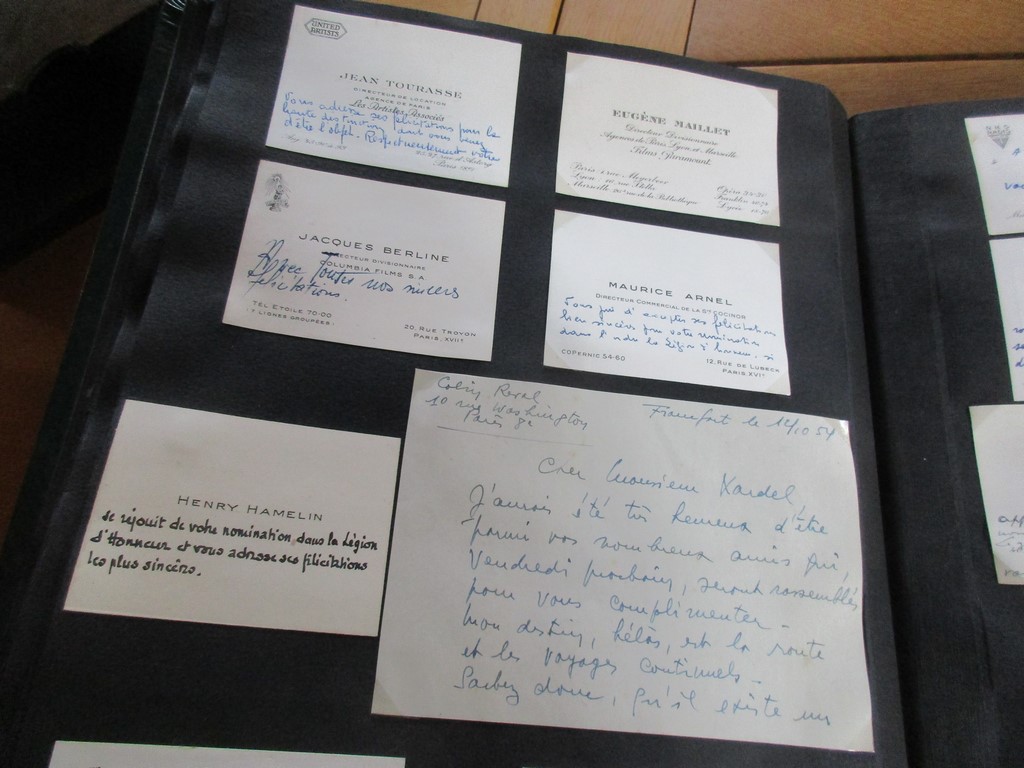 UNITED
ARTISTS
JEAN TOURASSE
DIRECTEUR DE LOCATION
AGENCE DE PARIS
Les Artistes Associés
Vous adresse ses félicitations pour la
haute distinction dont vous venez
d'être l'objet. Respectueusement votre
Paris
EUGÈNE MAILLET
Directeur Divisionnaire
Agences de Paris Lyon et Marseille
Films Paramount
Paris 1 rue Meyerbeer
Lyon rue
Marseille rue de la Bibliothèque
Opéra
Franklin
Lycée
JACQUES BERLINE
DIRECTEUR DIVISIONNAIRE
COLUMBIA FILMS S.A
Avec toutes nos sincères
félicitations.
TEL ETOILE 70-00
(7 LIGNES GROUPÉES)
20, RUE TROYON
PARIS, XVIIe
MAURICE ARNEL
DIRECTEUR COMMERCIAL DE LA STÉ COCINOR
Vous prie d'accepter ses félicitations
bien sincères pour votre nomination
dans l'ordre de la Légion d'honneur,
COPERNIC 54-60
12, RUE DE LUBECK
PARIS. XVIe
HENRY HAMELIN
se réjouit de votre nomination dans la Légion
d'Honneur et vous adresse ses félicitations
les plus sincères.
10 rue Washington
Paris 8e
Francfort le 12/10 54
Cher Monsieur
J'aurais été très heureux d'être
parmi vos nombreux amis qui,
Vendredi prochain, seront rassemblés
pour vous complimenter -
Mon destin, hélas, est la route
et les voyages continuels -
Sachez donc, qu'il existe un